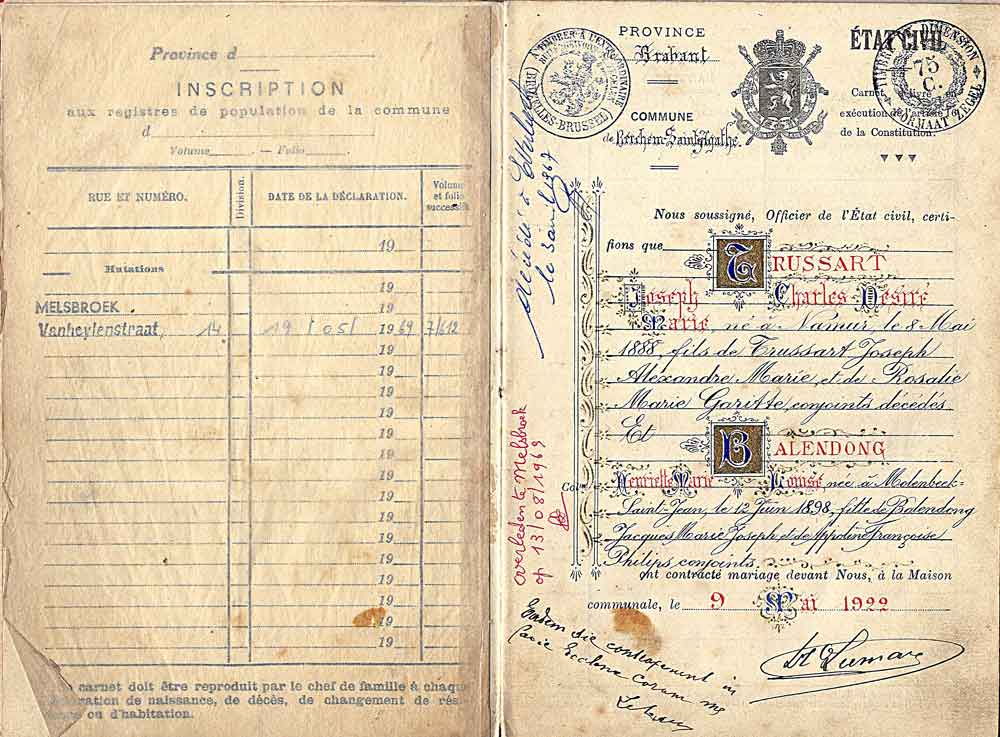 Province d
INSCRIPTION
aux registres de population de la commune
d
Volume — Folio .
RUE ET NUMÉRO.
Division.
DATE DE LA DÉCLARATION.
Volume
et folio
successifs
19
Mutations
19
MELSBROEK 19
Vanheylenstraat, 14 19 / 05 / 1969 7/612
19
19
19
19
19
19
19
19
19
19
19
19
19
19
19
19
carnet doit être reproduit par le chef de famille à chaque
de naissance, de décès, de changement de rés
ou d'habitation.
PROVINCE
Brabant
COMMUNE
de Berchem-Sainte-Agathe.
TIMBRER A L'EXTRAORDINAIRE
BRUXELLES-BRUSSEL
ÉTAT CIVIL
Carnet livré en
exécution de l'article
de la Constitution.
TIMBRE DE DIMENSION
75
C.
FORMAAT ZEGEL
Décédé à
le 1967
Nous soussigné, Officier de l'État civil, certi-
fions que TRUSSART
Joseph Charles Désiré
Marie, né à Namur, le 8 Mai
1888, fils de Trussart Joseph
Alexandre Marie et de Rosalie
Marie Garitte, conjoints décédés
Et BALENDONG
Henriette Marie Louise, née à Molenbeek-
Saint-Jean, le 12 Juin 1898, fille de Balendong
Jacques Marie Joseph et de Appoline Françoise
Philips, conjoints.
ont contracté mariage devant Nous, à la Maison
communale, le 9 Mai 1922
overleden te Melsbroek
op 13/08/1969
Eadem die
coram me